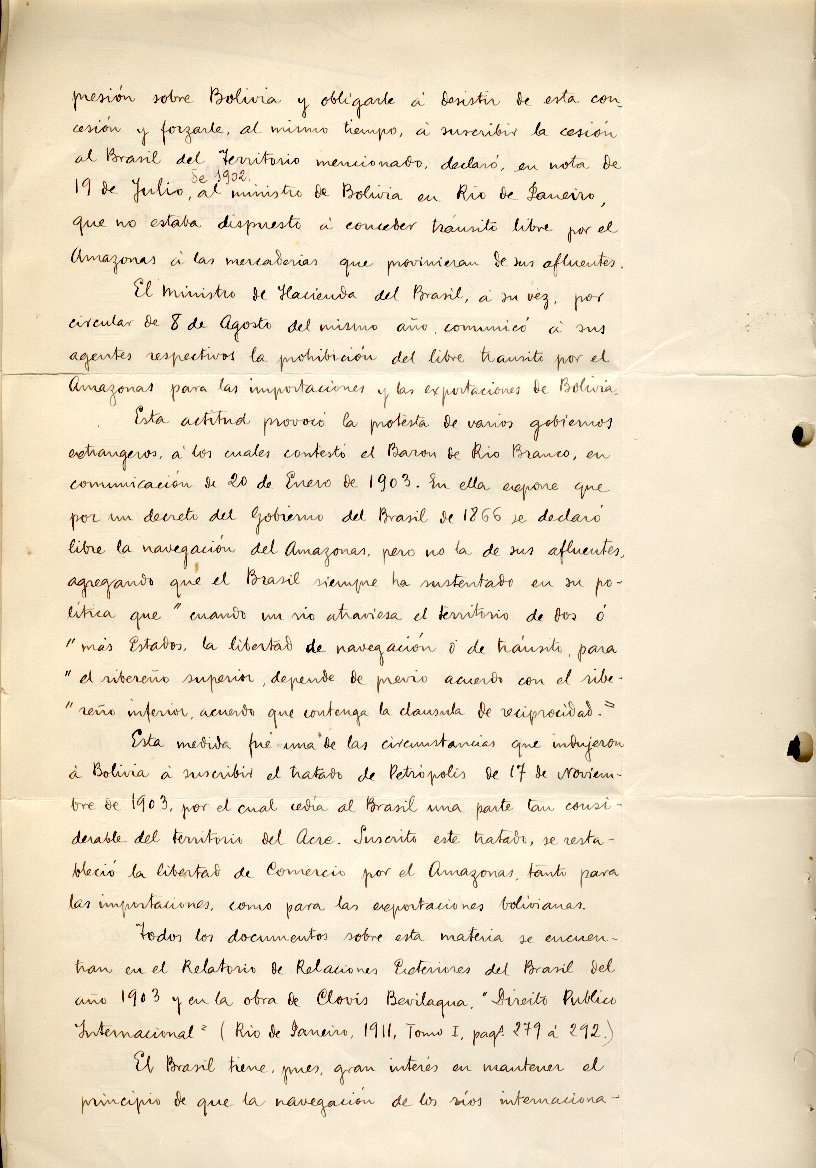 presión sobre Bolivia y obligarle á desistir de esta con-
cesión y forzarle, al mismo tiempo, á suscribir la cesión
al Brasil del Territorio mencionado, declaró, en nota de
de 1902.
19 de Julio, al ministro de Bolivia en Rio de Janeiro,
que no estaba dispuesto á conceder tránsito libre por el
Amazonas á las mercaderias que provinieran de sus afluentes.
El Ministro de Hacienda del Brasil, á su vez, por
circular de 8 de Agosto del mismo año, comunicó á sus
agentes respectivos la prohibición del libre transito por el
Amazonas para las importaciones y las exportaciones de Bolivia.
Esta actitud provocó la protesta de varios gobiernos
extrangeros, á los cuales contestó el Baron de Rio Branco, en
comunicación de 20 de Enero de 1903. En ella expone que
por un decreto del Gobierno del Brasil de 1866 se declaró
libre la navegación del Amazonas, pero no la de sus afluentes,
agregando que el Brasil siempre ha sustentado en su po-
lítica que "cuando un rio atraviesa el territorio de dos ó
"más Estados, la libertad de navegación ó de tránsito, para
"el ribereño superior, depende de previo acuerdo con el ribe-
"reño inferior, acuerdo que contenga la clausula de reciprocidad."
Esta medida fué una de las circunstancias que indujeron
á Bolivia á suscribir el tratado de Petrópolis de 17 de Noviem-
bre de 1903, por el cual cedía al Brasil una parte tan consi-
derable del territorio del Acre. Suscrito este tratado, se resta-
bleció la libertad de Comercio por el Amazonas, tanto para
las importaciones, como para las exportaciones bolivianas.
Todos los documentos sobre esta materia se encuen-
tran en el Relatorio de Relaciones Exteriores del Brasil del
año 1903 y en la obra de Clovis Bevilaqua, "Direito Publico
Internacional" (Rio de Janeiro, 1911, Tomo I, pags. 279 á 292.)
El Brasil tiene, pues, gran interés en mantener el
principio de que la navegación de los ríos internaciona-